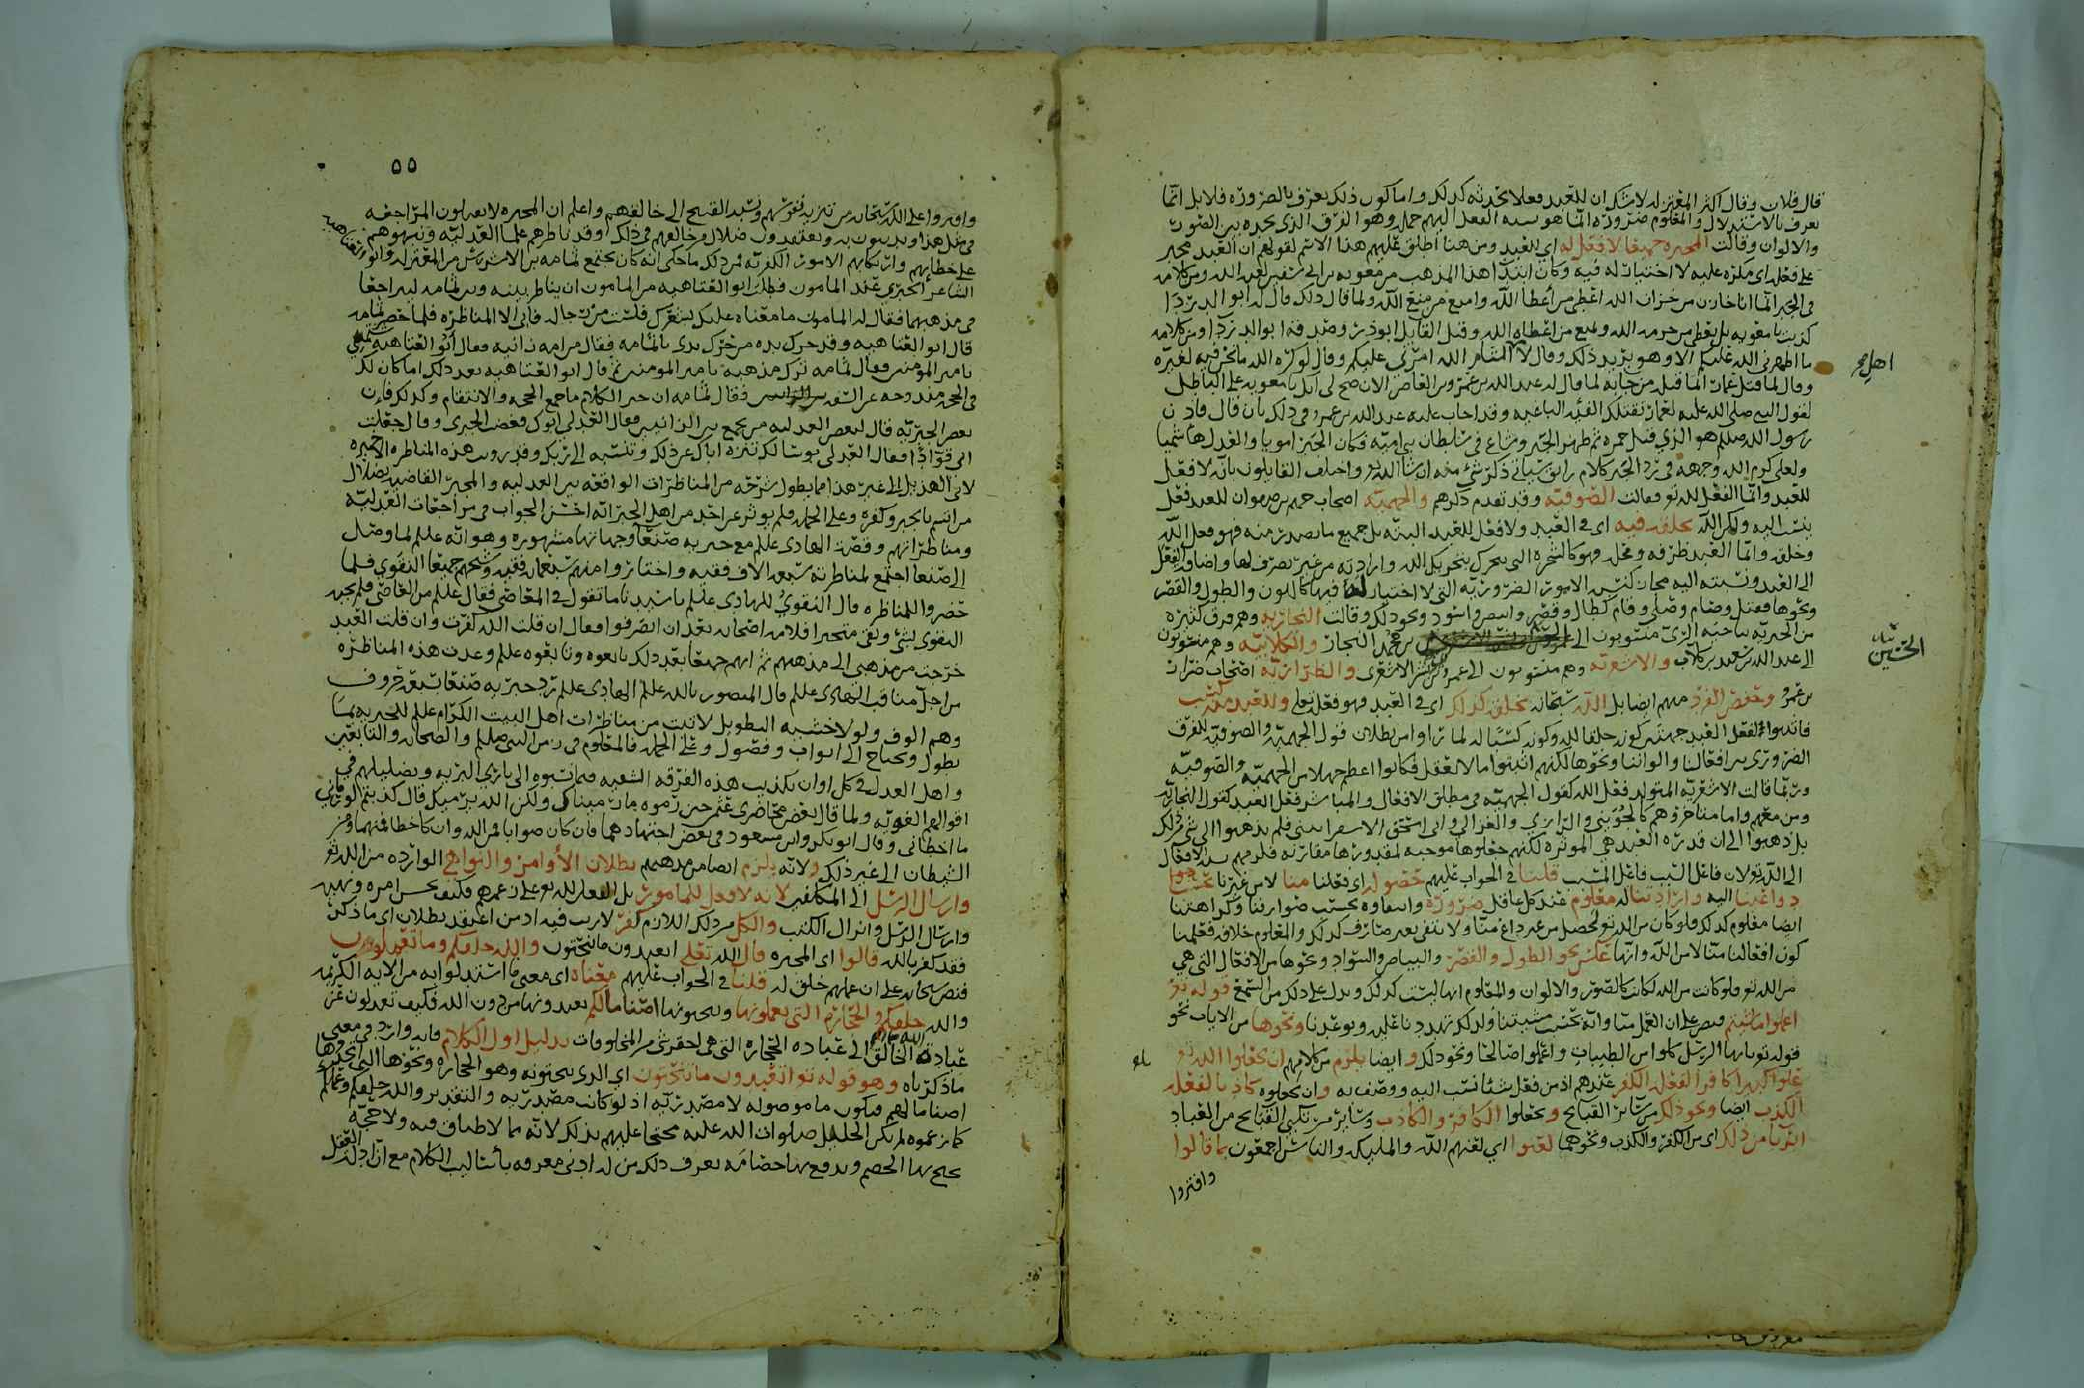 قال فلان وقال اكثر المعتزله لا شك ان للعبد فعلا يحدثه كذلك واما كون ذلك يعرف بالضرورة فلا بل انما
يعرف بالاستدلال والمعلوم ضرورة انما هو نسبه الفعل اليهم جمله وهو الفرق الذي نجده بين الصور
والالوان وقالت المجبره جميعا لا فعل له اي للعبد ومن هنا اطلق عليهم هذا الاسم لقولهم ان العبد مجبر
على فعله اى مكره عليه لا اختيار له فيه وكان ابتدا هذا المذهب من معويه
في الجبر انما انا خازن من خزان الله اعطى من اعطا الله وامنع من منع الله ولما قال ذلك قال له ابو الدرداء
كذبت يا معويه بل تعطي من حرمه الله وتمنع من اعطاه الله وقيل القايل ابو ذر وصدقه ابو الدردا ومن كلامه
ما اظهرني الله عليكم الا وهو يريد ذلك وقال لاهل الشام الله امرني عليكم وقال لو كره الله ما نحن فيه لغيره
اهل
وقال لما قتل عمار انما قتله من جا به لما قال له عبد الله بن عمرو بن العاص الان صح لي انك يا معويه على الباطل
لقول النبي صلى الله عليه لعمار تقتلك الفئه الباغيه وقد اجاب عليه عبد الله بن عمرو في ذلك بان قال فاذن
رسول الله صلعم هو الذي قتل حمزه ثم ظهر الجبر وشاع في سلطان بني اميه فكان الجبر امويا والعدل هاشميا
ولعلي كرم الله وجهه في رد الجبر كلام رايق سياتي ذكر شي منه ان شا الله تع واختلف القايلون بانه لا فعل
للعبد وانما الفعل لله تع فقالت الصوفيه وقد تقدم ذكرهم والجهميه اصحاب جهم بن صفوان للعبد فعل
ينسب اليه ولكن الله يخلقه فيه اى في العبد ولا فعل للعبد البته بل جميع ما يصدر منه فهو فعل الله
وخلقه وانما العبد ظرفه ومحله فهو كالشجره التى تتحرك بتحريك الله وارادته من غير تصرف لها واضافه الفعل
الى العبد ونسبته اليه مجاز كنسبه الامور الضروريه التي لا اختيار له فيها كاللون والطول والقصر
ونحوها فقتل وصام وصلى وقام كطال وقصر وابيض واسود ونحو ذلك وقالت النجاريه وهم فرق كثيره
من الجبريه بناحيه الرى منسوبون الى بن محمد النجار والكلابيه وهم منسوبون
الحسين
الى عبد الله بن سعيد بن كلاب والاشعريه وهم منسوبون الى الاشعرى والضراريه اصحاب ضرار
بن عمرو وحفص الفرد منهم ايضا بل الله سبحانه يخلقه كذلك اى في العبد فهو فعل لله تعلى وللعبد منه كسب
فاثبتوا لفعل العبد جهتين كونه خلقا لله وكونه كسبا له لما راوا من بطلان قول الجهميه والصوفيه للفرق
الضروري بين افعالنا والواننا ونحوها لكنهم اثبتوا ما لا يعقل فكانوا اعظم جهلا من الجهميه والصوفيه
وربما قالت الاشعريه المتولد فعل الله كقول الجهميه في مطلق الافعال والمباشر فعل العبد كقول النجاريه
ومن معهم واما متاخروهم كالجويني والرازي والغزالي وابى اسحق الاسفرايني فلم يذهبوا الى شي من ذلك
بل ذهبوا الى ان قدره العبد هي الموثره لكنهم جعلوها موجبه لمقدورها مقارنه فلزمهم
الى الله تع لان فاعل السبب فاعل المسبب قلنا في الجواب عليهم حصوله اى فعلنا منا لا من غيرنا بحسب
دواعينا اليه وارادتنا له معلوم عند كل عاقل ضرورة وانتفاوه بحسب صوارفنا وكراهتنا
ايضا معلوم كذلك فلو كان من الله تع لحصل من غير داع منا ولا نتفى بغير صارف كذلك والمعلوم خلافه فعلمنا
كون افعالنا منا لا من الله وانها عكس نحو الطول والقصر والبياض والسواد ونحوها من الافعال التي هي
من الله تع فلو كانت من الله لكانت كالصور والالوان والمعلوم انها ليست كذلك ويدل على ذلك من السمع قوله تع
اعملوا ما شئتم فنص على ان العمل منا وانه بحسب مشيتنا ولذلك تهددنا عليه وتوعدنا ونحوها من الايات نحو
قوله تع يا ايها الرسل كلوا من الطيبات واعملوا صالحا ونحو ذلك وايضا يلزم من كلامهم ان يجعلوا الله تع
علوا كبيرا كافرا لفعله الكفر عندهم اذ من فعل شئا نسب اليه ووصف به وان يجعلوه كاذبا لفعله
الكذب ايضا ونحو ذلك من سائر القبائح ويجعلوا الكافر والكاذب وسائر مرتكبي القبائح من العباد
ابريا من ذلك اى من الكفر والكذب ونحوهما لعنوا اي لعنهم الله والمليكه والناس اجمعون بما قالوا
وافتروا
٥٥
وافتروا على الله سبحانه من تنزيه نفوسهم ونسبه القبيح الى خالقهم واعلم ان المجبره لا يعدلون المراجعه
في مثل هذا ويدينون به ويعتقدون ضلال مخالفهم في ذلك وقد ناظرهم علما العدليه ونبهوهم
على خطايهم وارتكابهم الامور الكفريه من ذلك ما حكى انه كان يجتمع ثمامه بن الاشرس من المعتزله وابو العتاهيه
الشاعر الجبري عند المامون فطلب ابو العتاهيه من المامون ان يناظر بينه وبين ثمامه ليتراجعا
في مذهبهما فقال له المامون ما معناه عليك بشعرك فلست من رجاله فابى الا المناظره فلما حضر ثمامه
قال ابو العتاهيه وقد حرك يده من حرك يدي يا ثمامه فقال من امه زانيه فقال ابو العتاهيه شتمني
يا مير المومنين فقال ثمامه ترك مذهبه يا مير المومنين ثم قال ابو العتاهيه بعد ذلك اما كان لك
في الحجه مندوحه عن السفه فقال ثمامه ان خير الكلام ما جمع الحجه والانتقام وكذلك فان
بعض الجبريه قال لبعض العدليه من يجمع بين الزانيين فقال العدلي ابوك فغضب الجبرى وقال جعلت
ابى قوادا فقال العدلى يوشا لك تنزه اباك عن ذلك وتنسبه الى ربك وقد رويت هذه المناظره الاخيره
لابى الهذيل الى غير هذا مما يطول شرحه من المناظرات الواقعه بين العدليه والمجبره القاضيه بضلال
من اتسم بالجبر وكفره وعلى الجمله فلم يوثر عن احد من اهل الجبر انه احسن الجواب في مراجعات العدليه
ومناظراتهم وقصه الهادى علم مع جبريه صنعا وجهاتها مشهوره وهو انه علم لما وصل
الى صنعا اجتمع لمناظرته سبعه الاف فقيه واختاروا منهم سبعمايه فقيه وشيخهم جميعا النقوي فلما
حضروا للمناظره قال النقوي للهادى علم يا سيدنا ما تقول في المعاصي فقال علم من العاصي فلم يجبه
النقوى بشي وبقى متحيرا فلامه اصحابه بعد ان انصرفوا فقال ان قلت الله كفرت وان قلت العبد
خرجت من مذهبي الى مذهبهم ثم انهم جميعا بعد ذلك تابعوه وبايعوه علم وعدت هذه المناظره
من اجل مناقب الهادى علم قال المنصور بالله علم الهادى علم رد جبريه صنعا بسبعه حروف
وهم الوف ولولا خشيه التطويل لاتيت من مناظرات اهل البيت الكرام علم للجبريه بما
يطول ويحتاج الى ابواب وفصول وعلى الجمله فالمعلوم في زمن النبي صلعم والصحابه والتابعين
واهل العدل في كل اوان تكذيب هذه الفرقه الشقيه فيما نسبوه الى باري البريه وتضليلهم في
اقوالهم الغويه ولما قال بعض محاضرى عثمن حين رموه ما رميناك ولكن الله يرميك قال كذبتم لو رماني
ما اخطاني وقال ابو بكر وابن مسعود في بعض اجتهادهما فان كان صوابا فمن الله وان كان خطا فمنهما ومن
الشيطان الى غير ذلك ولانه يلزم ايضا من مذهبهم بطلان الاوامر والنواهى الوارده من الله تع
وارسال الرسل الى المكلفين لانه لا فعل للمامور بل الفعل لله تع على زعمهم فكيف يحسن امره ونهيه
وارسال الرسل وانزال الكتب والكل من ذلك اللازم كفر لا ريب فيه اذ من اعتقد بطلان اى ما ذكر
فقد كفر بالله قالوا اى المجبره قال الله تعلى اتعبدون ما تنحتون والله خلقكم وما تعملون
فنص سبحانه على ان عملهم خلق له قلنا في الجواب عليهم معناه اى معنى ما استدلوا به من الايه الكريمه
والله خلقكم والحجاره التى تعملونها وتنحتونها اصناما لكم تعبدونها من دون الله فكيف تعدلون عن
عباده الله الخالق لكم الى عباده الحجاره التى هى احقر شي من المخلوقات بدليل اول الكلام فانه وارد في معنى
ما ذكرناه وهو قوله تع اتعبدون ما تنحتون اي الذي تنحتونه وهو الحجاره ونحوها التى تتخذونها
اصناما لهم فيكون ما موصوله لا مصدريه اذ لو كانت مصدريه والتقدير والله خلقكم وعملكم
كما زعموه لم يكن الخليل صلوات الله عليه محتجا عليهم بذلك لانه مما لا طباق فيه ولا حجه
يحج بها الخصم ويدفع بها خصامه يعرف ذلك من له ادنى معرفه باساليب الكلام مع ان ادله العقل